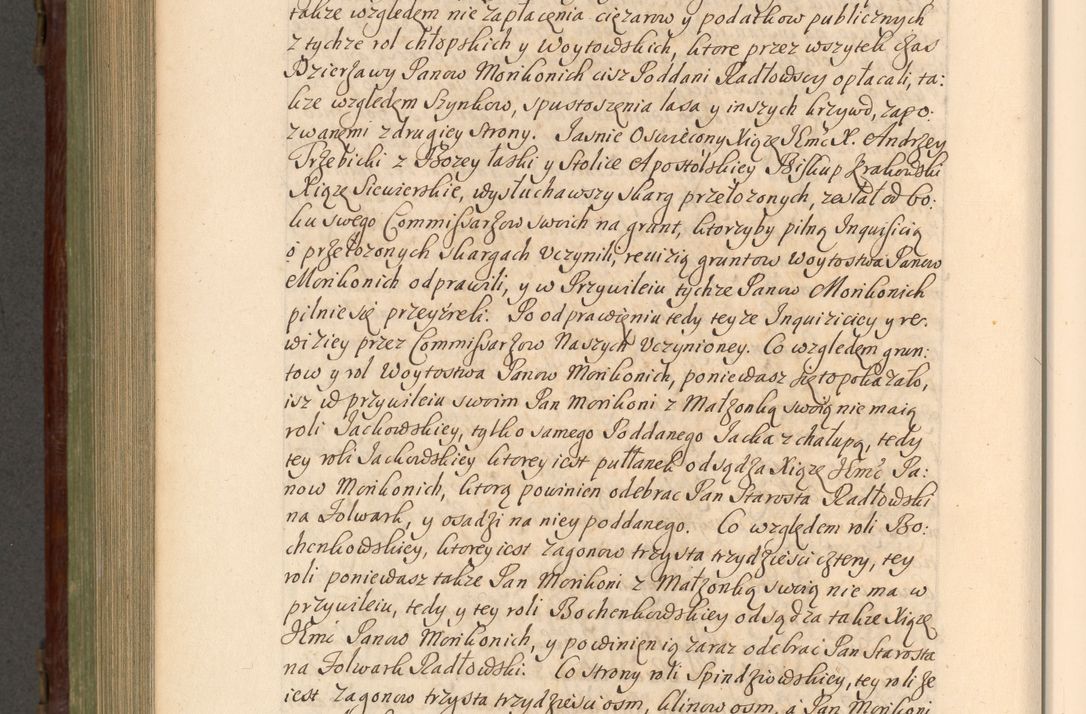 także względem nie zapłacenia cięzarow y podatkow publicznych
z tychze rol chłopskich y Woytowskich, ktore przez wszytek czas
Dzierzawy Panow Morikonich cisz Poddani Radłowscy opłacali, ta:
kze względem Szynkow, spustoszenia lasa y inszych krzywd, zapo:
zwanemi z drugiey strony. Jasnie Oswiecony Xiąze Jmć X. Andrzey
Trzebicki z Bozey łaski y Stolice Apostolskiey Biskup Krakowski
Xiąze Siewierskie, wysłuchawszy skarg przełozonych, zesłał od bo:
ku swego Commissarzow swoich na grunt, ktorzyby pilną Inquisicią
o przełozonych skargach uczynili, rewizią gruntow Woytostwa Panow
Morikonich odprawili, y w Przywileiu tychze Panow Morikonich
pilnie się przeyźreli. Po odprawieniu tedy teyze Inquiziciey y re:
wiziey przez Commissarzow Naszych uczynioney. Co względem grun:
tow y rol Woytostwa Panow Morikonich, poniewasz się to pokazało,
isz w przywileiu swoim Pan Morikoni z Małzonką swoią nie maią
roli Jackowskiey, tylko samego Poddanego Jacka z chałupą, tedy
tey roli Jackowskiey ktorey iest pułłanek odsądza Xiąze Jmć Pa:
now Morikonich, ktorą powinien odebrac Pan Starosta Radłowski
na Folwark, y osadzi na niey poddanego. Co względem roli Bo:
chenkowskiey, ktorey iest zagonow trzysta trzydzieści cztery, tey
roli poniewasz takze Pan Morikoni z Małzonką swoią nie ma w
przywileiu, tedy y tey roli Bochenkowskiey odsądza takze Xiąze
Jmć Panow Morikonich, y powinien ią zaraz odebrac Pan Starosta
na Folwark Radłowski. Co strony roli Spindziowskiey, tey roli ze
iest zagonow trzysta trzydzieści osm, klinow osm, a Pan Morikoni